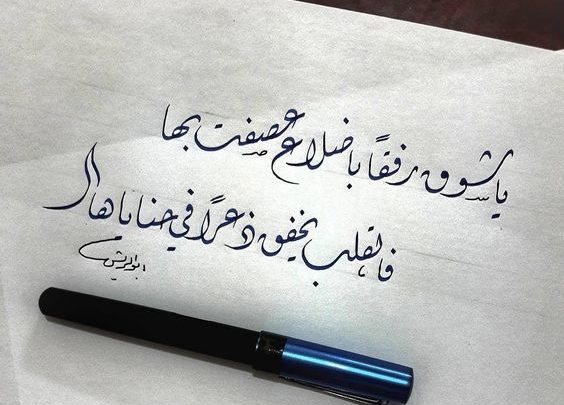 يا شوق رفقًا باضلاع عصفت بها
فالقلب يخفق ذعرًا في حناياها